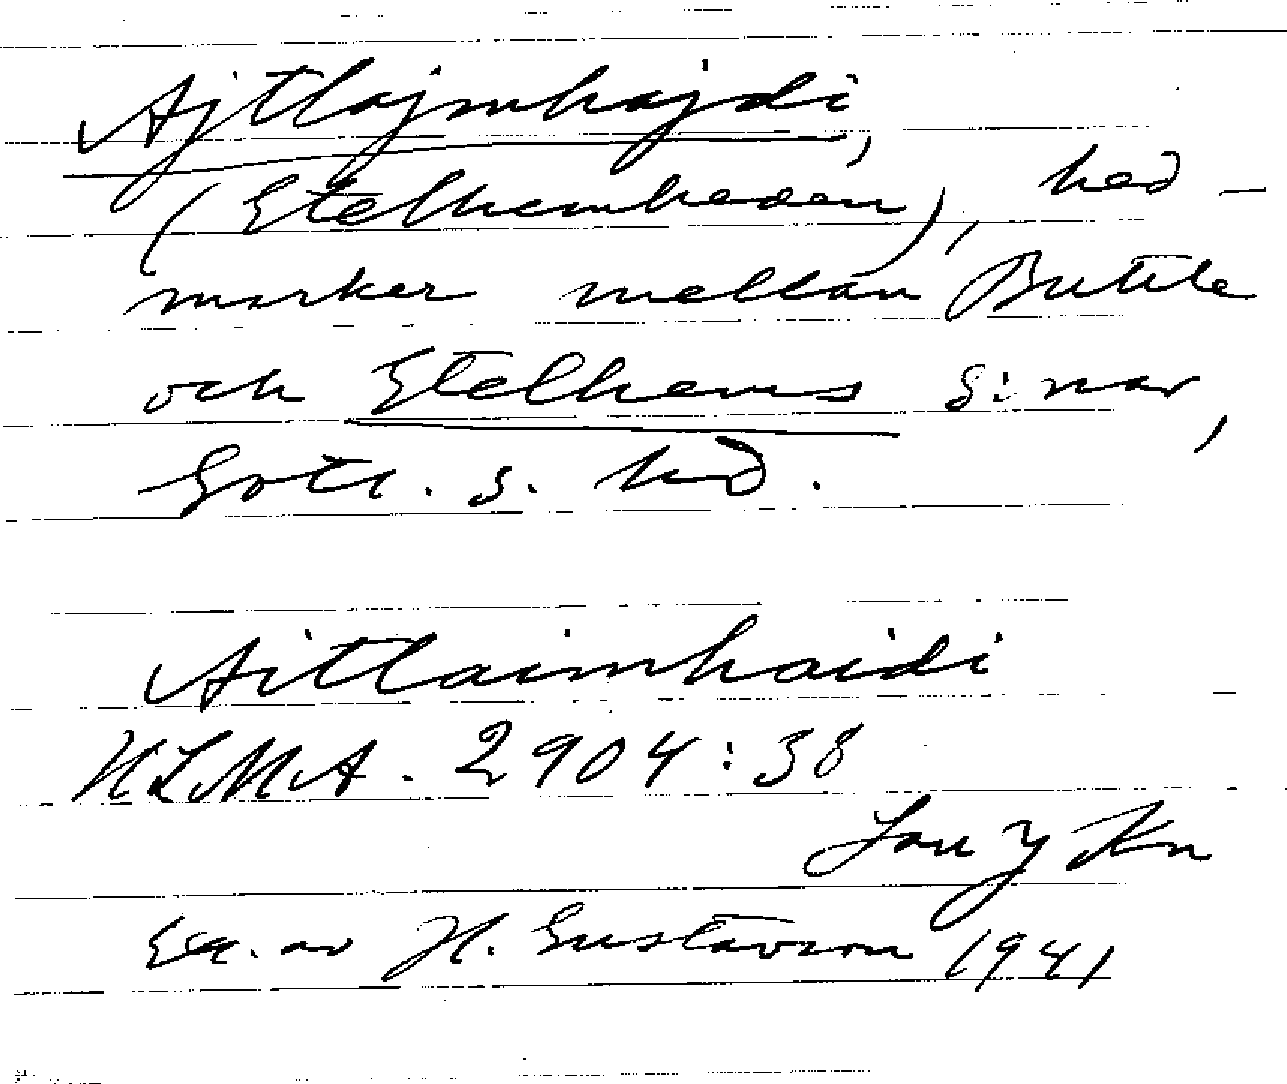 Ajtlajmhajdi,
(Etelhemheden), hed-
marker mellan Buttle
och Etelhems s:nar,
Gotl. s. hd.
Aitlaimhaidi
ULMA. 2904:38
Exc. av H. Gustavson 1941